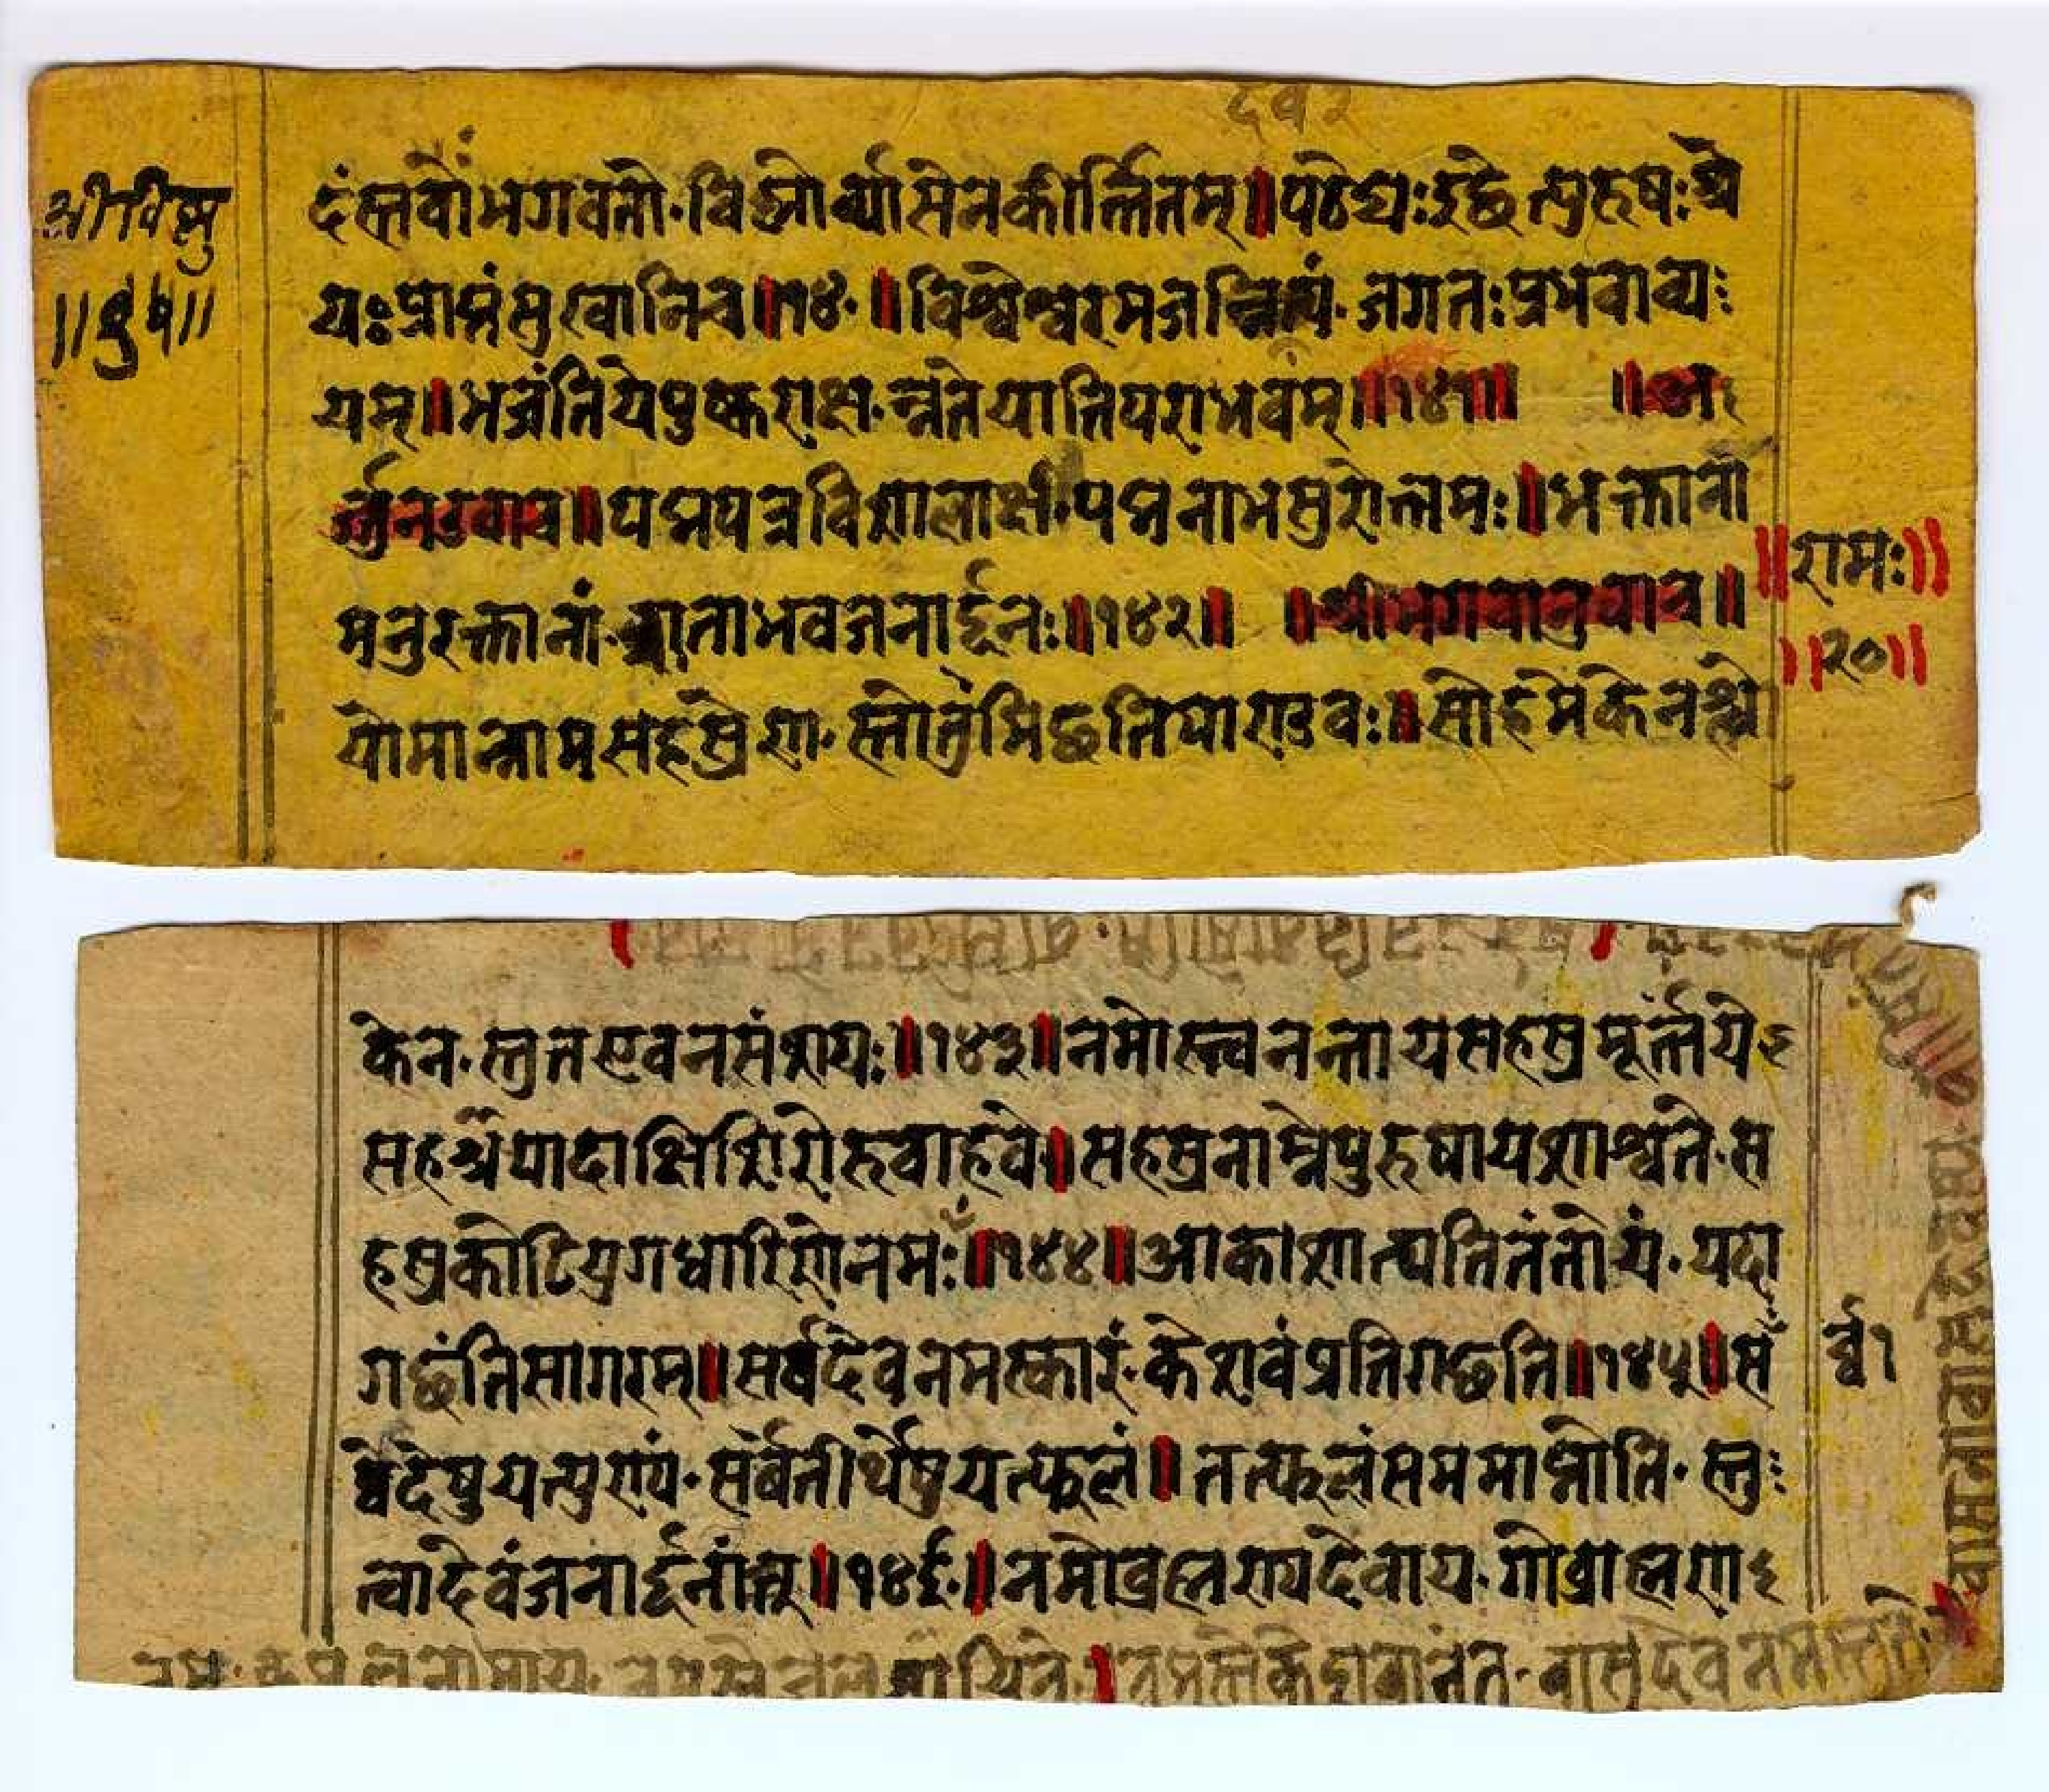 श्रीविष्णु
दंस्तवोंभगवतो·विष्णोर्व्यासेनकीर्त्तितम्॥पठेद्यःइछेत्पुरुषःश्रे
यःप्राप्नंसुखानिच॥१४·॥विश्वेश्वरमजन्नित्यं·जगतःप्रभवाव्य
यम्॥भजंतियेपुष्कराक्ष·न्नतेयातिपराभवंम्॥१४१॥ ॥अ
र्जुनउवाच॥पद्मपत्रविशालाक्ष·पद्मनाभसुरोत्तमः॥भक्तानां
मनुरक्तानां·त्राताभवजनार्द्दनः॥१४२॥ ॥श्रीभगवानुवाच॥
॥रामः॥
॥२०॥
योमान्नामसहस्रेण·स्तोतुंमिछतिपाण्डवः॥सोहमेकेनश्लो
केन·स्तुतएवनसंशयः॥१४३॥नमोस्त्वनन्तायसहस्रमूर्त्तये
सहश्रंपादाक्षिशिरोरुवाहवे॥सहस्रनाम्नेपुरुषायशाश्वते·स
हस्रकोटियुगधारिणेनमः॥१४४॥आकाशात्पतितंतोयं·यदा
गछंतिसागरम्॥सर्वदेवनमस्कारं·केशवंप्रतिगछति॥१४५॥सं
र्व्व१
र्वेदेषुयत्पुण्यं·सर्वतीर्थेषुयत्फलं॥तत्फलंसममाप्नोति·स्तु
त्वादेवंजनार्द्दनंम्॥१४६·॥नमोब्रह्मण्यदेवाय·गोब्राह्मणा
वासुदेवनमस्तुते